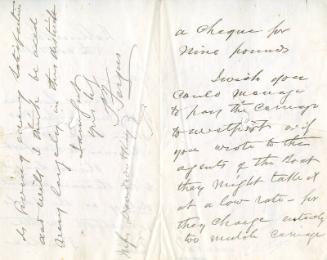 a Cheque for
Nine pounds
I wish you
Could manage
to pay the Carriage
to Westport or if
you wrote to the
agents of the Boat
they might take it
at a low rate - for
they Charge
too much Carriage
is giving every satisfaction
and will I think be used
very largely in this district
I am Sir
Yrs
Fergus